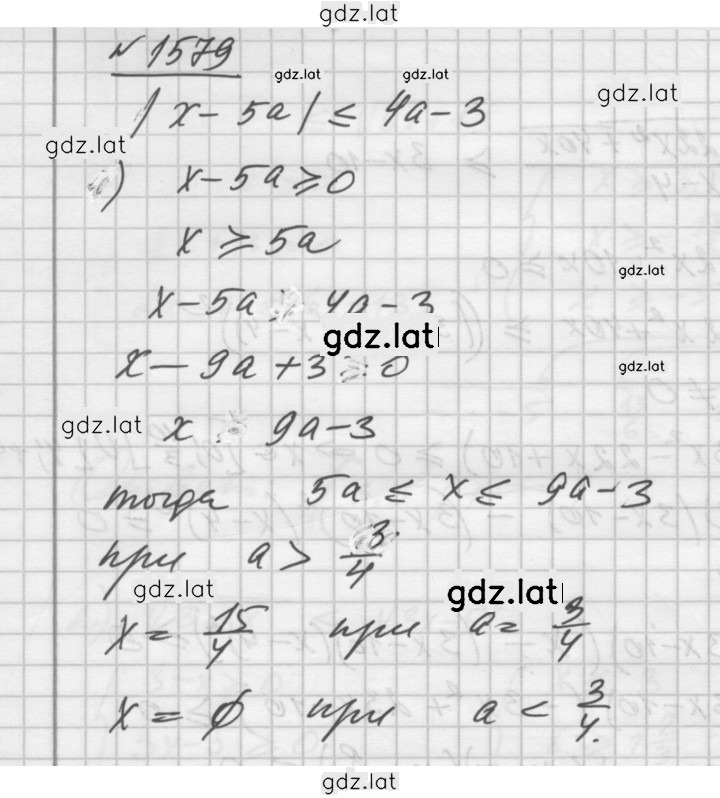 gdz.lat
№ 1579
gdz.lat gdz.lat
gdz.lat
|x - 5a| ≤ 4a - 3
gdz.lat
x - 5a ≥ 0
x ≥ 5a
gdz.lat
x - 5a 4a - 3
gdz.lat
x - 9a + 3 0
gdz.lat
gdz.lat
x 9a - 3
тогда 5a ≤ x ≤ 9a - 3
при a > 3/4
gdz.lat
gdz.lat
x = 15/4 при a = 3/4
x = ∅ при a < 3/4.
gdz.lat